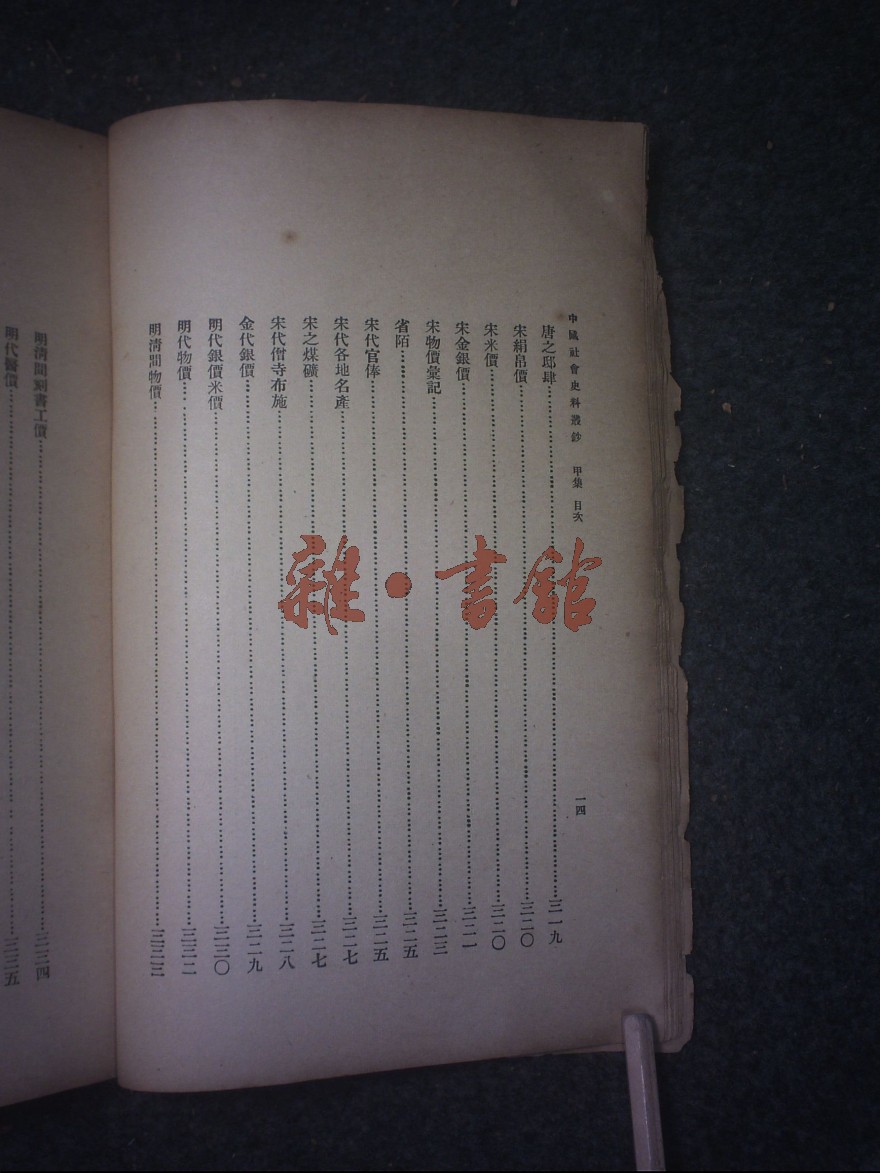 中國社會史料叢鈔 甲集 目次 一四
唐之邸肆……三一九
宋絹帛價……三二〇
宋米價……三二〇
宋金銀價……三二一
宋物價彙記……三二三
省陌……三二五
宋代官俸……三二五
宋代各地名產……三二七
宋之煤礦……三二七
宋代僧寺布施……三二八
金代銀價……三二九
明代銀價米價……三三〇
明代物價……三三二
明清間物價……三三三
明清間刻書工價……三三四
明代醫價……三三五
雜·書館